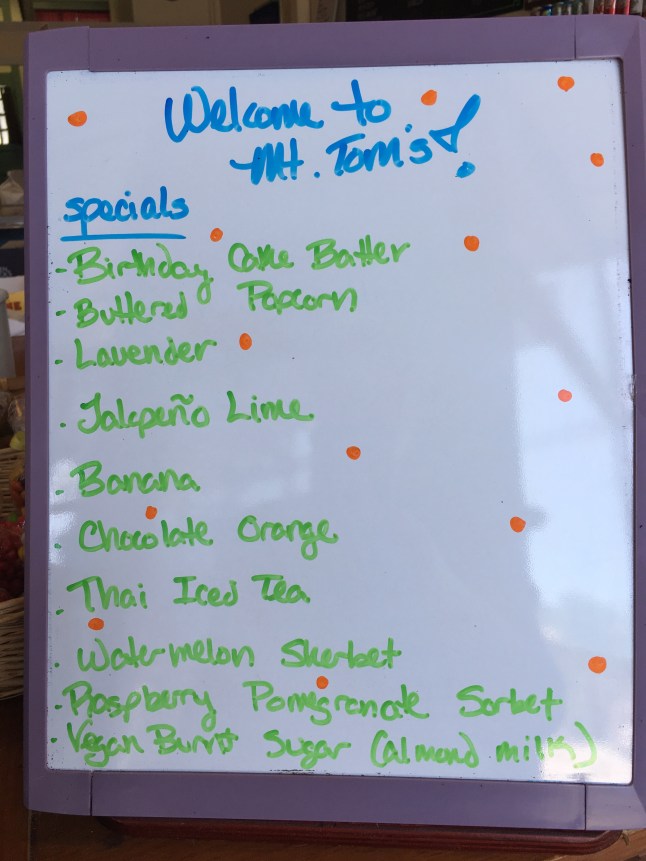 Welcome to
Mt. Tom's!
specials
- Birthday Cake Batter
- Buttered Popcorn
- Lavender
- Jalepeño Lime
- Banana
- Chocolate Orange
- Thai Iced Tea
- Watermelon Sherbet
- Raspberry Pomegranate Sorbet
- Vegan Burnt Sugar (almond milk)